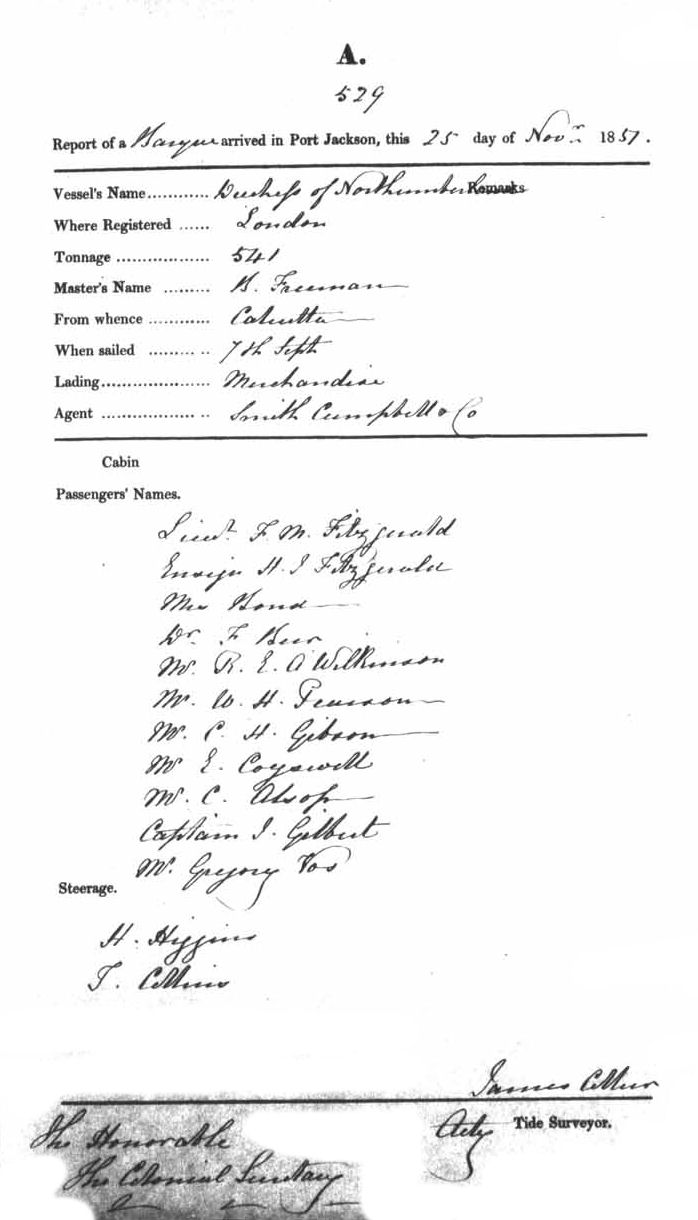 A.
529
Report of a Barque arrived in Port Jackson, this 25 day of Novr 1851.
Vessel's Name............ Duchess of Northumberland Remarks
Where Registered ...... London
Tonnage .................. 541
Master's Name ......... B. Freeman
From whence ............ Calcutta
When sailed ......... .. 7th Sept
Lading..................... Merchandise
Agent .................. .. Smith Campbell & Co
Cabin
Passengers' Names.
Lieut. F. M. Fitzgerald
Ensign H. J Fitzgerald
Mrs Bond
Dr. F Beer
Mr. R. E. A Wilkinson
Mr. W. H. Pearson
Mr. C. H. Gibson
Mr E. Cogswell
Mr. C. Alsop
Captain J. Gilbert
Mr. Gregory Vos
Steerage.
H. Higgins
T. Collins
James
Actg Tide Surveyor.
The Honorable
The Colonial Secretary